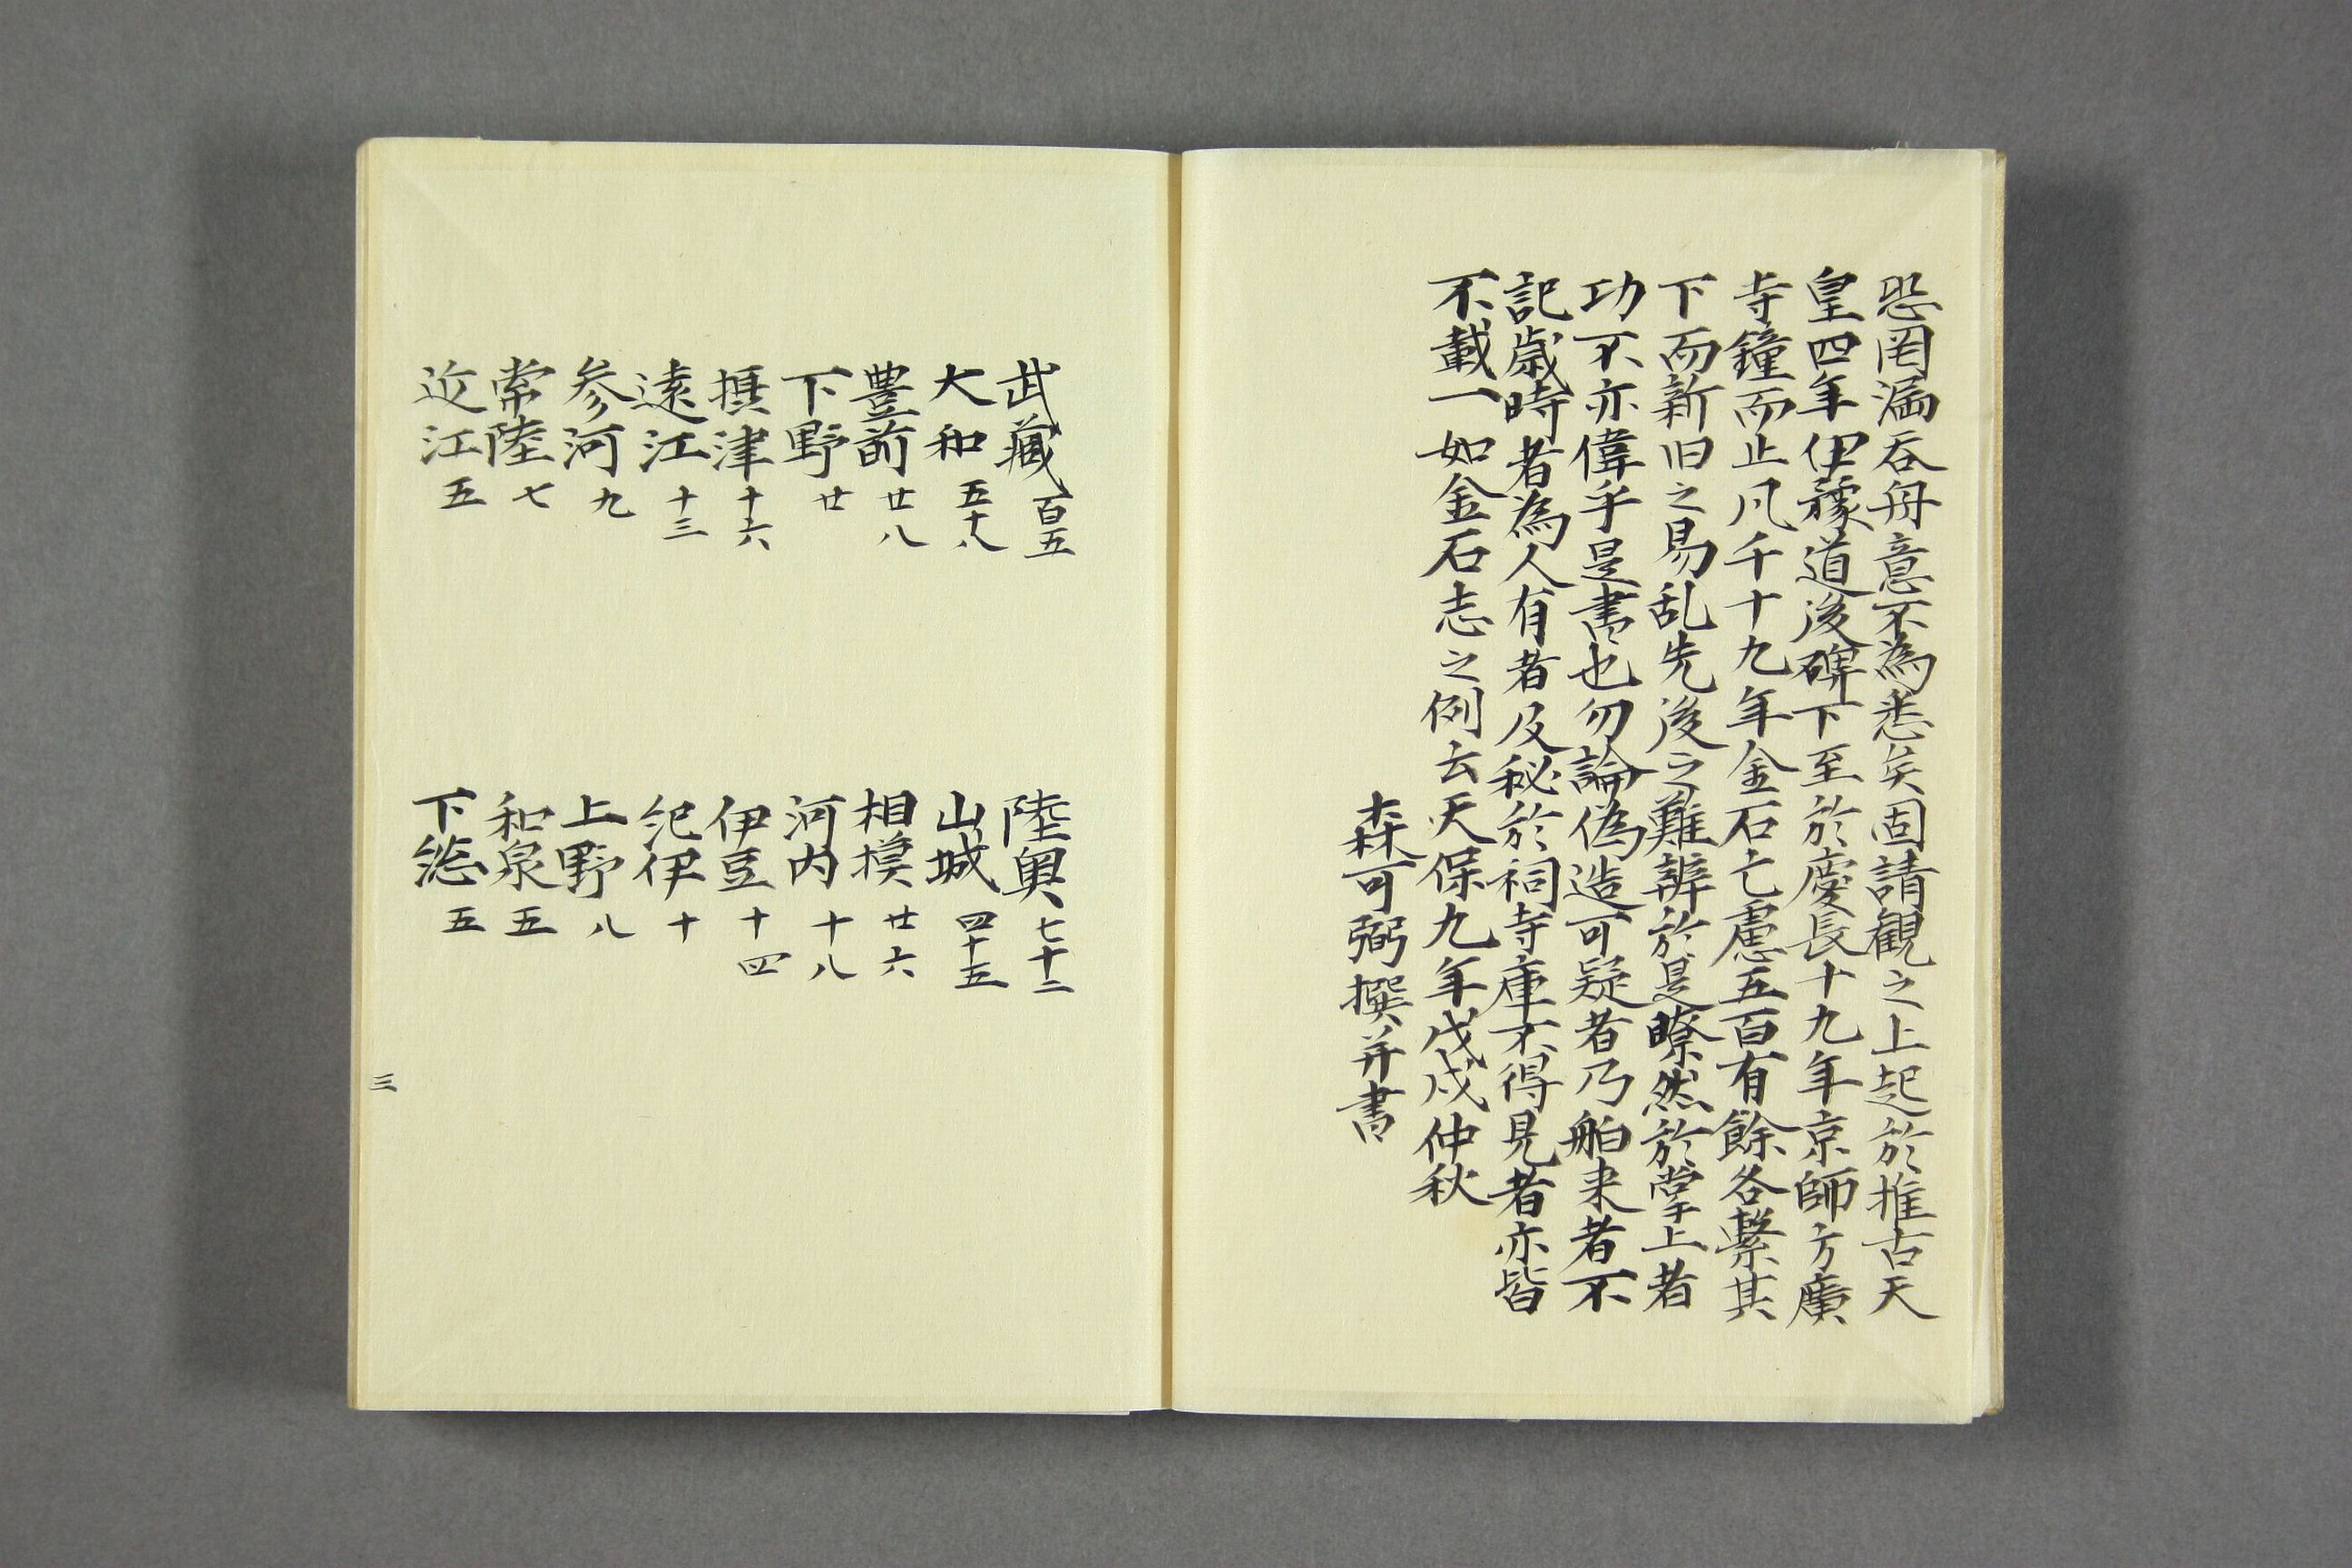 恐罔漏吞舟意不為悉矣固請観之上起於推古天
皇四年伊豫道後碑下至於慶長十九年京師方廣
寺鐘而止凡千十九年金石亡慮五百有餘各繋其
下而新旧之易乱先後之難辨於是瞭然於掌上者
功不亦偉乎是書也勿論偽造可疑者乃舶来者不
記歳時者為人有者及秘於祠寺庫不得見者亦皆
不載一如金石志之例云天保九年戊戌仲秋
森可弼撰并書
武蔵百五
陸奥七十二
大和五十八
山城四十五
豊前廿八
相模廿六
下野廿
河内十八
摂津十六
伊豆十四
遠江十三
紀伊十
参河九
上野八
常陸七
和泉五
近江五
下総五
三